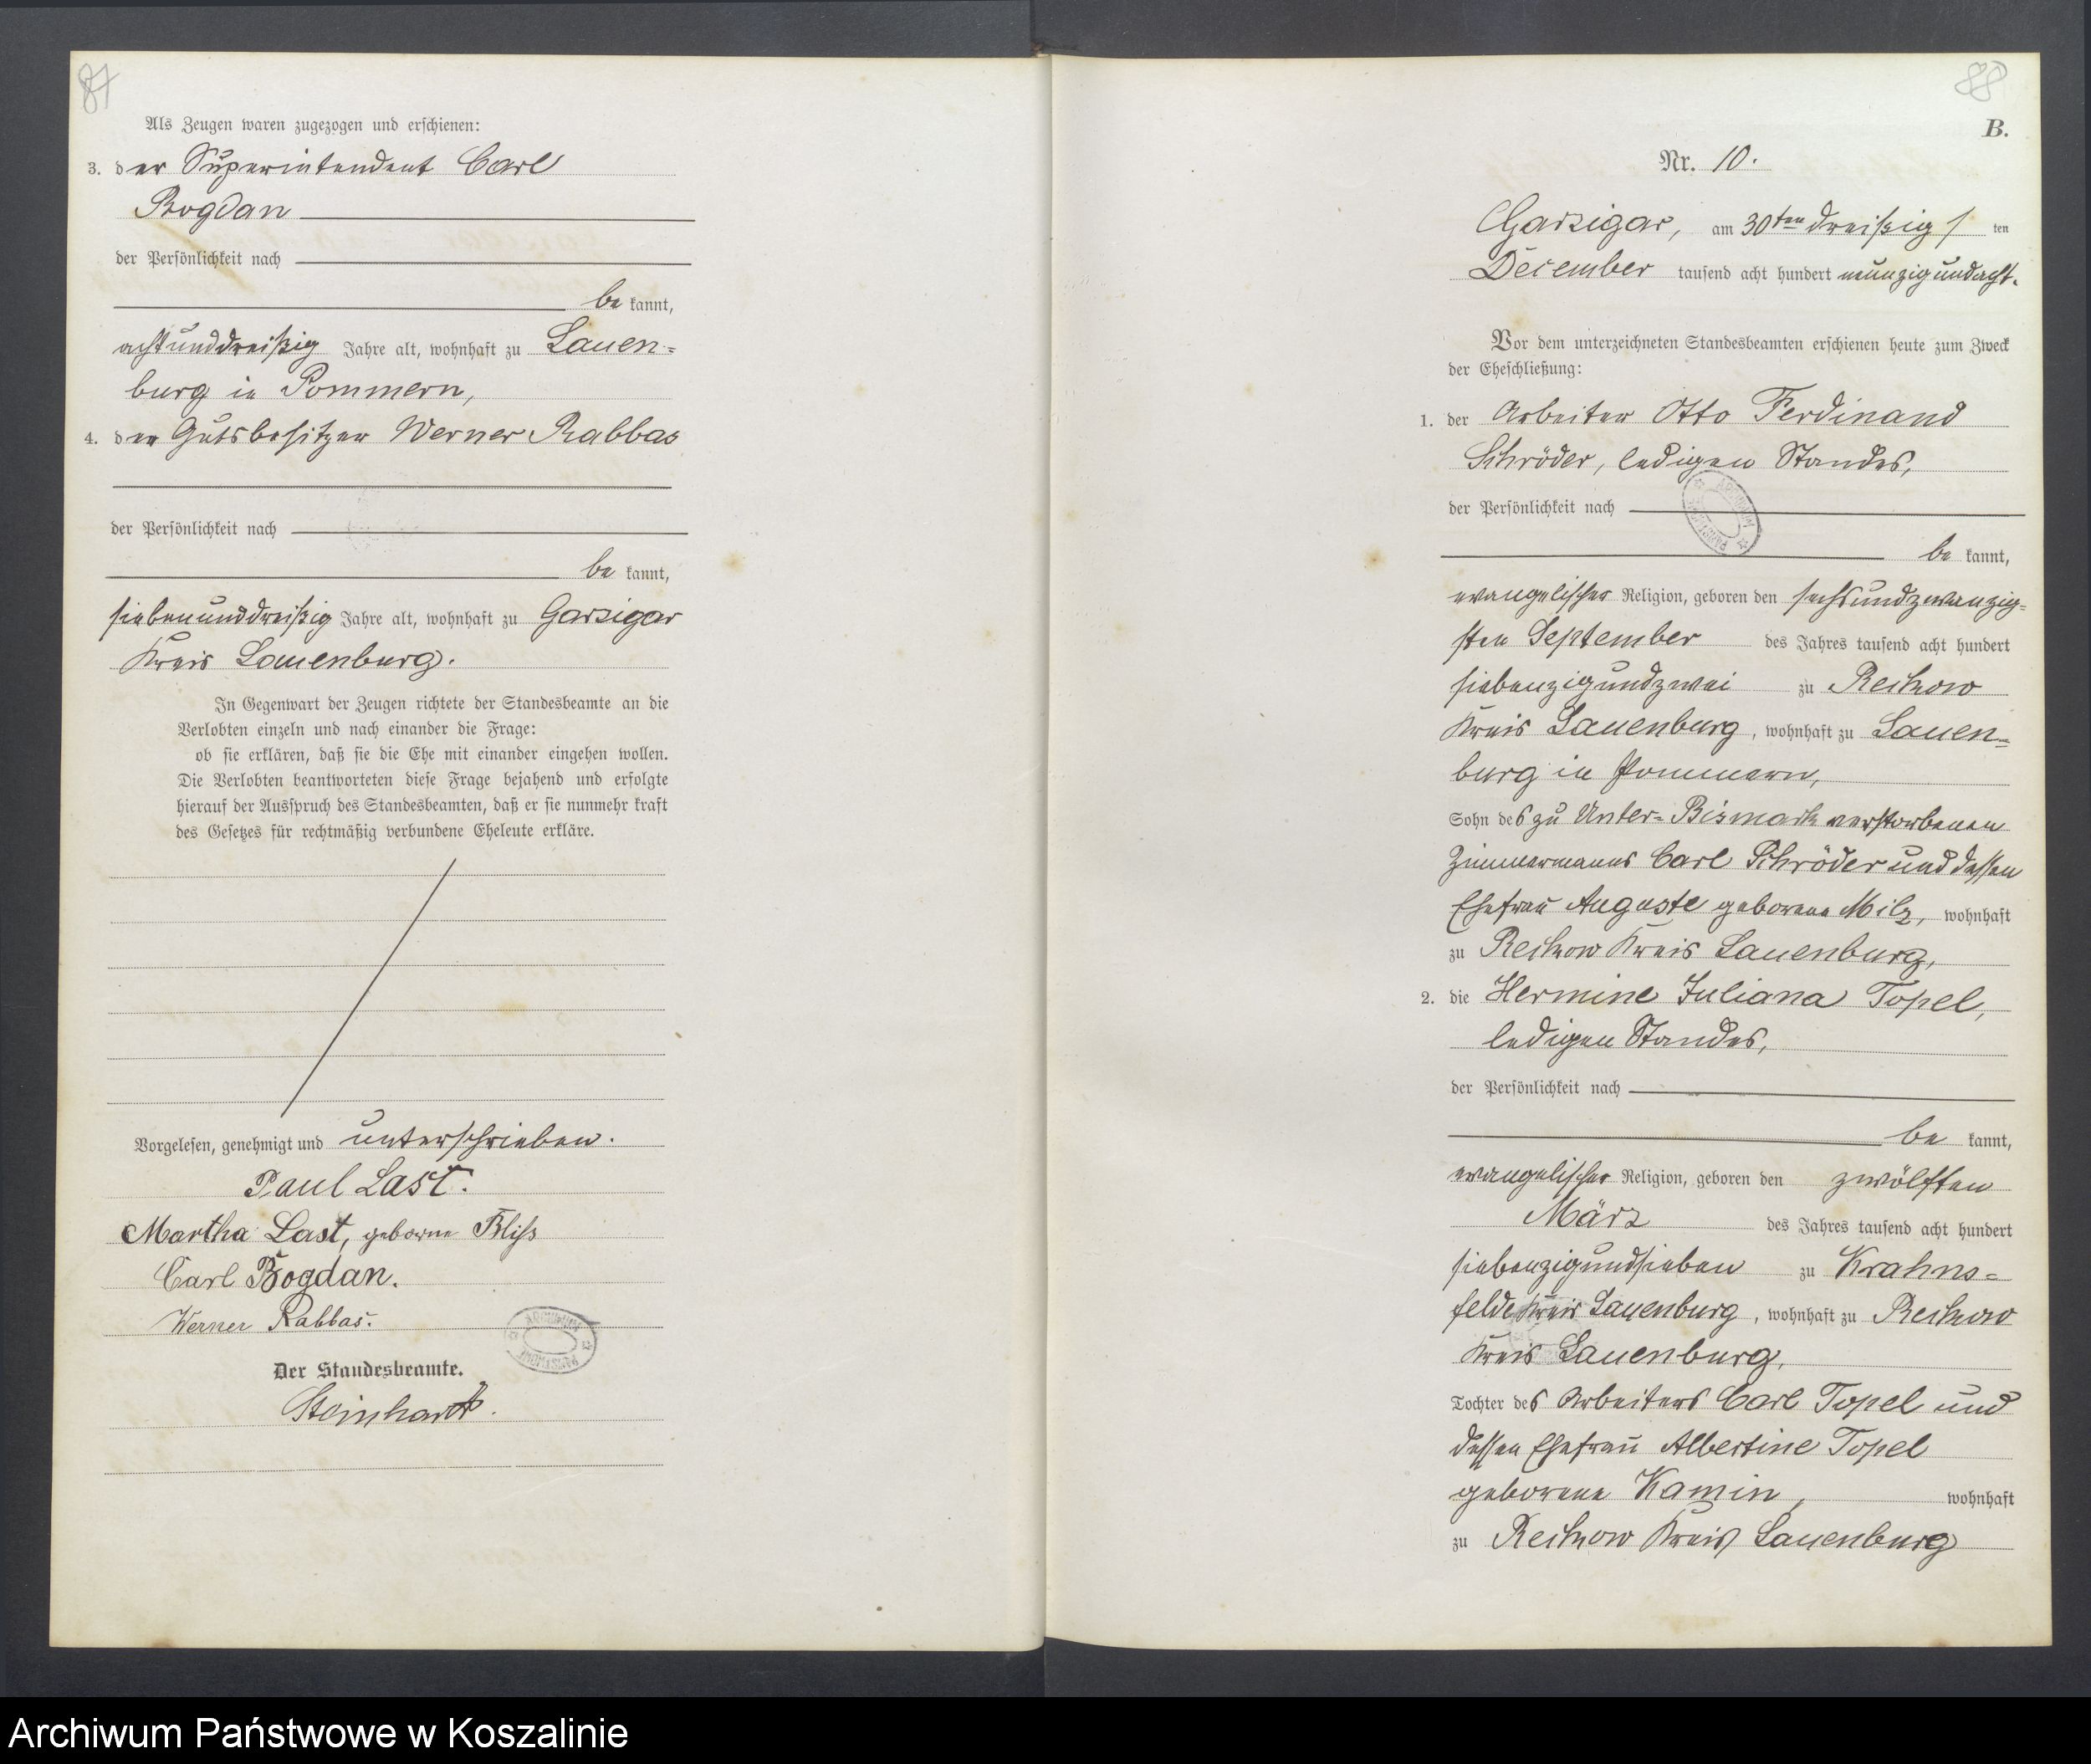 87
Als Zeugen waren zugezogen und erschienen:
3. der Superintendent Carl
Bogdan
der Persönlichkeit nach
be kannt,
achtunddreißig Jahre alt, wohnhaft zu Lauen=
burg in Pommern,
4. der Gutsbesitzer Werner Rabbas
der Persönlichkeit nach
be kannt,
siebenunddreißig Jahre alt, wohnhaft zu Garzigar
Kreis Lauenburg.
In Gegenwart der Zeugen richtete der Standesbeamte an die
Verlobten einzeln und nach einander die Frage:
ob sie erklären, daß sie die Ehe mit einander eingehen wollen.
Die Verlobten beantworteten diese Frage bejahend und erfolgte
hierauf der Ausspruch des Standesbeamten, daß er sie nunmehr kraft
des Gesetzes für rechtmäßig verbundene Eheleute erkläre.
Vorgelesen, genehmigt und unterschrieben.
Paul Last.
Martha Last, geborne Bliß
Carl Bogdan.
Werner Rabbas.
ARCHIWUM PAŃSTWOWE
Der Standesbeamte.
Steinhardt.
88
B.
Nr. 10.
Garzigar, am 30ten dreißig / ten
December tausend acht hundert neunzigundacht.
Vor dem unterzeichneten Standesbeamten erschienen heute zum Zweck
der Eheschließung:
1. der Arbeiter Otto Ferdinand
Schröder, ledigen Standes,
der Persönlichkeit nach
ARCHIWUM PAŃSTWOWE
be kannt,
evangelischer Religion, geboren den sechsundzwanzig=
sten September des Jahres tausend acht hundert
siebenzigundzwei zu Reckow
Kreis Lauenburg, wohnhaft zu Lauen=
burg in Pommern,
Sohn des zu Unter=Bismark verstorbenen
Zimmermanns Carl Schröder und dessen
Ehefrau Auguste geborene Milz, wohnhaft
zu Reckow Kreis Lauenburg,
2. die Hermine Juliana Topel,
ledigen Standes,
der Persönlichkeit nach
be kannt,
evangelischer Religion, geboren den zwölften
März des Jahres tausend acht hundert
siebenzigundsieben zu Krahns=
felde Kreis Lauenburg, wohnhaft zu Reckow
Kreis Lauenburg,
Tochter des Arbeiters Carl Topel und
dessen Ehefrau Albertine Topel
geborene Kamin, wohnhaft
zu Reckow Kreis Lauenburg
Archiwum Państwowe w Koszalinie